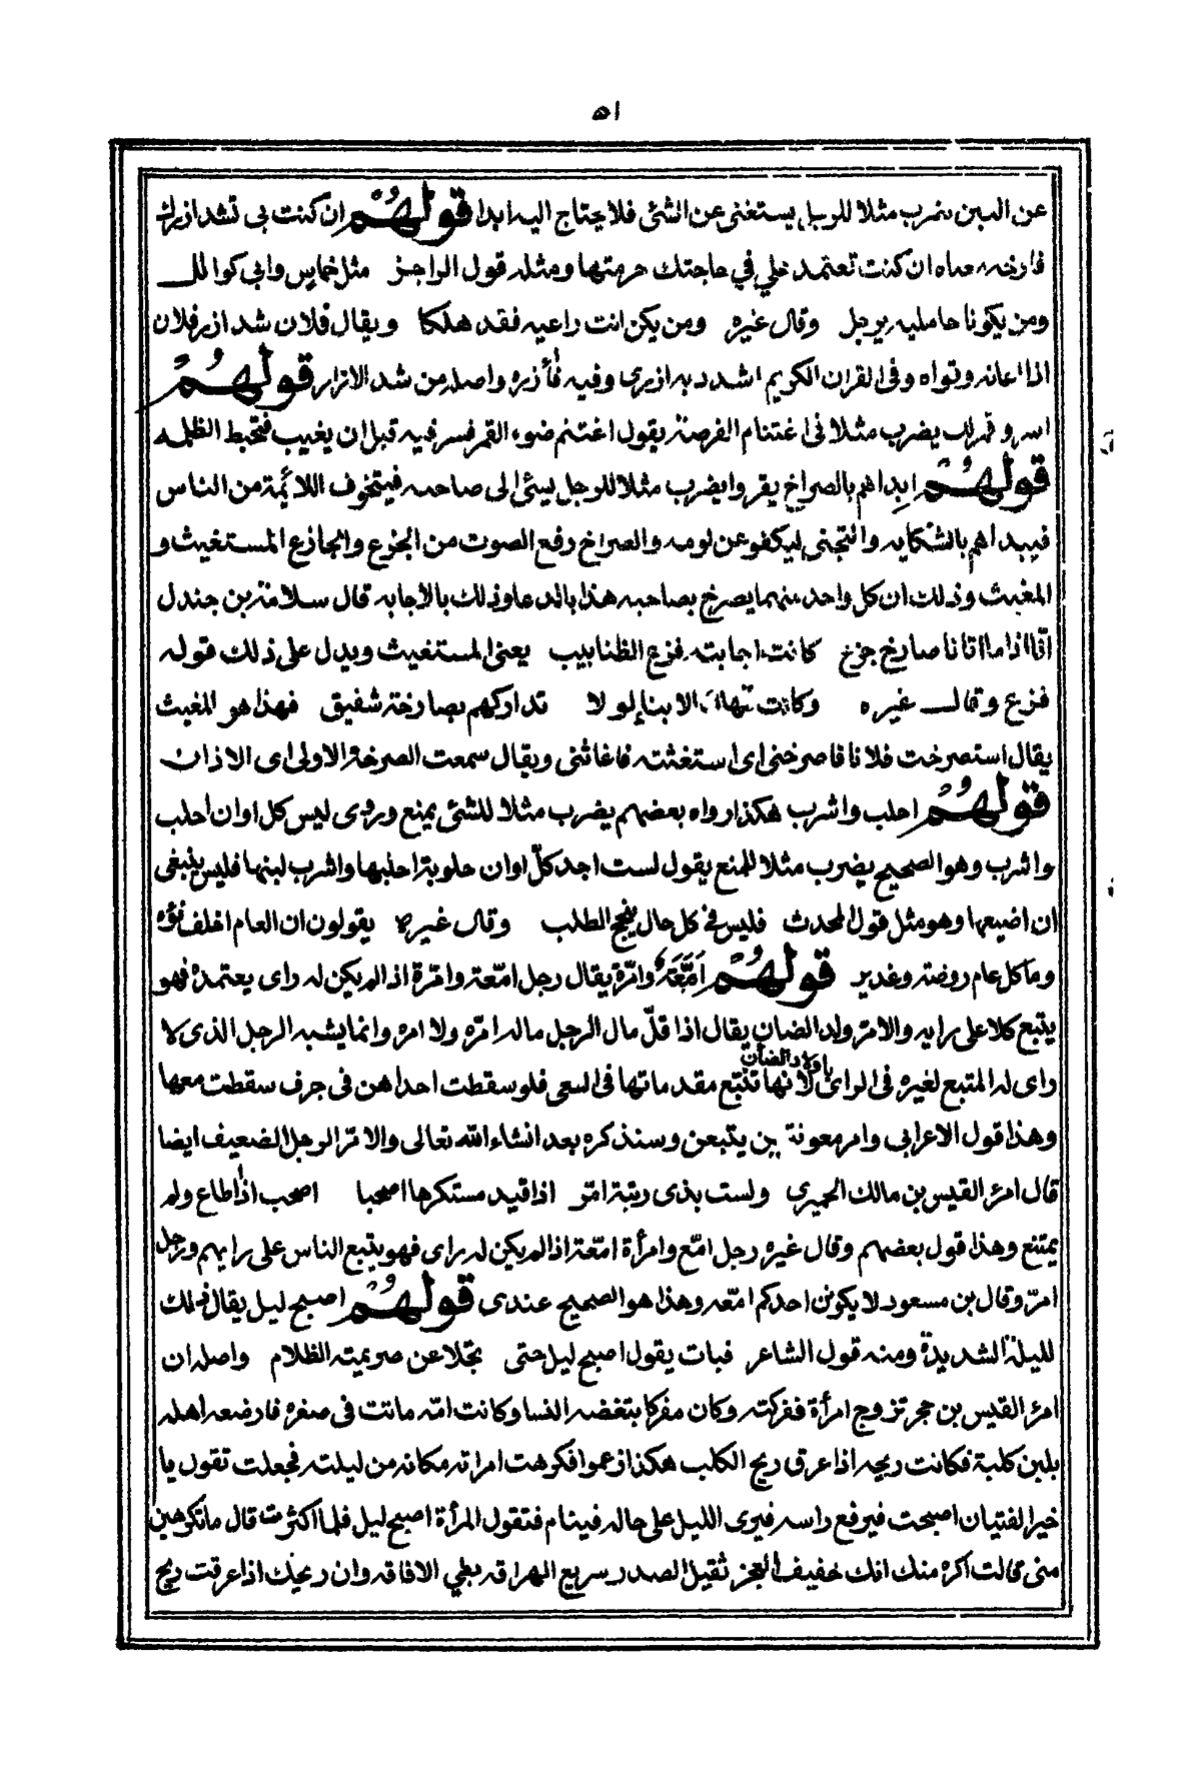 ٥١
عن اللبن يضرب مثلا للرجل يستغنى عن الشئ فلا يحتاج اليه ابدا قولهم ان كنت بى تشد ازرك
فارخه معناه ان كنت تعتمد على في حاجتك حرمتها ومثله قول الراجز مثل خمايس وابى كوالل
ومن يكونا حامليه يرجل وقال غيره ومن يكن انت راعيه فقد هلكا ويقال فلان شد ازر فلان
اذا اعانه وقواه وفى القران الكريم اشدد به ازرى وفيه فأزره واصله من شد الازار قولهم
اسر وقمر لك يضرب مثلا فى اغتنام الفرصة يقول اغتنم ضوء القمر فسر فيه قبل ان يغيب فتخبط الظلمه
قولهم ابداهم بالصراخ يقروا يضرب مثلا للرجل يسئ الى صاحبه فيتخوف اللائمة من الناس
فيبداهم بالشكايه والتجنى ليكفو عن لومه والصراخ رفع الصوت من الجزع والجازع المستغيث و
المغيث وذلك ان كل واحد منهما يصرخ بصاحبه هذا بالدعا وذلك بالاجابه قال سلامة بن جندل
انّا اذا ما اتانا صارخ جزع كانت اجابته فزع الظنابيب يعنى المستغيث ويدل على ذلك قوله
فزع وقال غيره وكانت الابنا لولا تداركهم بصارخة شفيق فهذا هو المغيث
يقال استصرخت فلانا فاصرخنى اى استغثته فاغاثنى ويقال سمعت الصرخة الاولى اى الاذان
قولهم احلب واشرب هكذا رواه بعضهم يضرب مثلا للشئ يمنع وروى ليس كل اوان احلب
واشرب وهو الصحيح يضرب مثلا للمنع يقول لست اجد كلّ اوان حلوبة احلبها واشرب لبنها فليس ينبغى
ان اضيعها وهو مثل قول المحدث فليس فى كل حال ينجح الطلب وقال غيره يقولون ان العام اخلف نؤه
وما كل عام روضه وغدير قولهم امّعَة وامّرة يقال رجل امّعة وامّرة اذا لم يكن له راى يعتمده فهو
يتبع كلا على رايه والامّر ولد الضان يقال اذا قلّ مال الرجل ماله امّره ولا امره وانما يشبه الرجل الذى لا
راى له المتبع لغيره فى الراى باولاد الضأن لانها تتبّع مقدماتها فى السعى فلو سقطت احداهن فى جرف سقطت معها
وهذا قول الاعرابى وامر معوية بن يتبعن وسنذكره بعد انشاء الله تعالى والامّر الرجل الضعيف ايضا
قال امرؤ القيس بن مالك الحميرى ولست بذى رثية امّر اذا قيد مستكرها اصحبا اصحب اذا اطاع ولم
يمتنع وهذا قول بعضهم وقال غيره رجل امّع وامرأة امّعة اذا لم يكن له راى فهو يتبع الناس على رايهم ورجل
امرّ وقال بن مسعود لا يكونن احدكم امّعه وهذا هو الصحيح عندى قولهم اصبح ليل يقال ذلك
لليلة الشديدة ومنه قول الشاعر فبات يقول اصبح ليل حتى تجلا عن صريمته الظلام واصله ان
امرؤ القيس بن حجر تزوج امرأة ففركته وكان مفركا تبغضه النسا وكانت امّه ماتت فى صغره فارضعه اهله
بلبن كلبة فكانت ريحه اذا عرق ريح الكلب هكذا زعموا فكرهت امراته مكانه من ليلته فجعلت تقول يا
خير الفتيان اصبحت فيرفع راسه فيرى الليل على حاله فينام فتقول المرأة اصبح ليل فلما اكثرت قال ما تكرهين
منى قالت اكره منك انك خفيف العجز ثقيل الصدر سريع الهراقه بطى الافاقه وان ريحك اذا عرقت ريح